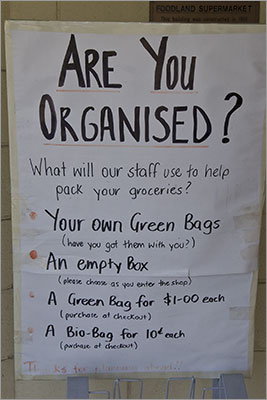 FOODLAND SUPERMARKET
ARE YOU
ORGANISED?
What will our staff use to help
pack your groceries?
Your own Green Bags
(have you got them with you?)
An empty Box
(please choose as you enter the shop)
A Green Bag for $1-00 each
(purchase at checkout)
A Bio-Bag for 10¢ each
(purchase at checkout)